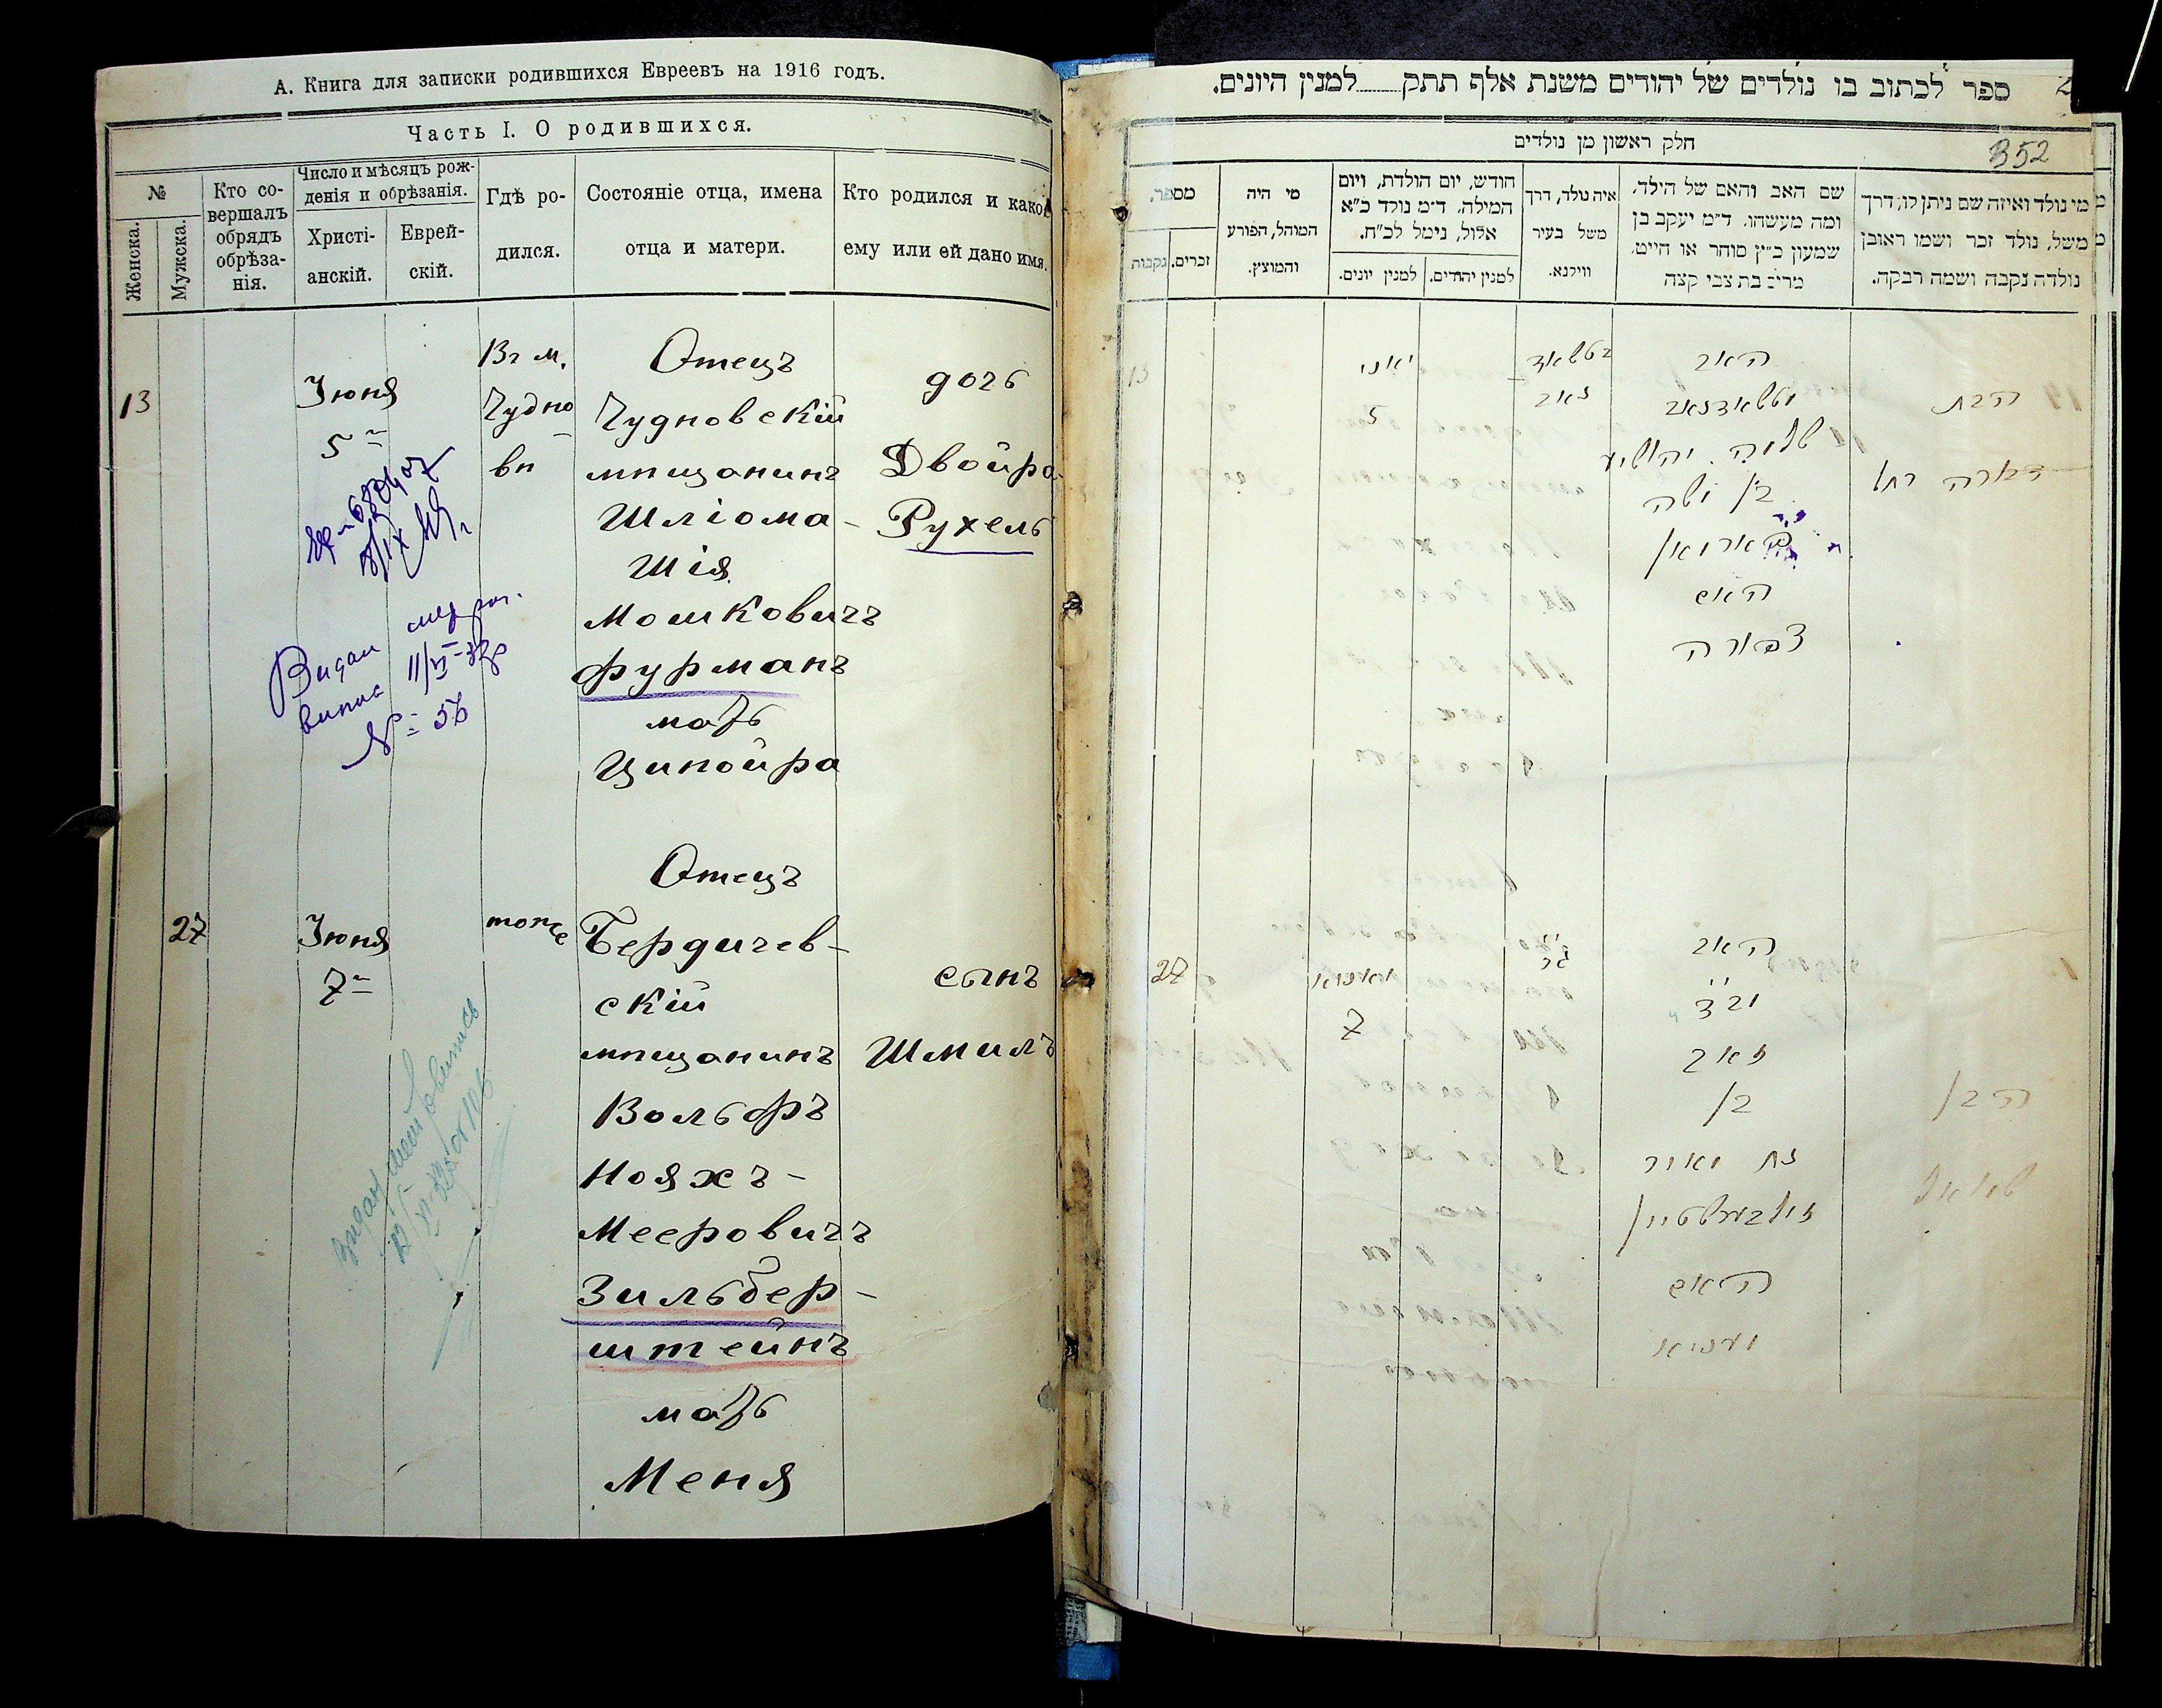 А. Книга для записки родившихся Евреевъ на 1916 годъ.
Часть I. О родившихся.
№
Женска.
Мужска.
Кто со-
вершалъ
обрядъ
обрѣза-
нія.
Число и мѣсяцъ рож-
денія и обрѣзанія.
Христі-
анскій.
Еврей-
скій.
Гдѣ ро-
дился.
Состояніе отца, имена
отца и матери.
Кто родился и какое
ему или ей дано имя.
13
Іюня
5
Въ м.
Чудно
вѣ
Отецъ
Чудновскій
мѣщанинъ
Шліома-
Шія
Мошковичъ
Фурманъ
мать
Ципойра
дочь
Двойра-
Рухель
Видан
випис
11/VI-
№ 56
27
Іюня
7
тоже
Отецъ
Бердичев-
скій
мѣщанинъ
Вольфъ
Нояхъ-
Мееровичъ
Зильбер-
штейнъ
мать
Меня
сынъ
Шмилъ
ספר לכתוב בו נולדים של יהודים משנת אלף תתק למנין היונים.
חלק ראשון מן נולדים
352
מספר.
זכרים.
נקבות
מי היה
המוהל, הפורע
והמוצץ.
חודש, יום הולדת, ויום
המילה. ד״מ נולד כ״א
אלול, נימל לכ״ח.
למנין יהודים.
למנין יונים.
איה נולד, דרך
משל בעיר
ווילנא.
שם האב והאם של הילד,
ומה מעשהו. ד״מ יעקב בן
שמעון כ״ץ סוחר או חייט.
מרים בת צבי קצה
מי נולד ואיזה שם ניתן לו; דרך
משל, נולד זכר ושמו ראובן
נולדה נקבה ושמה רבקה.
13
יאני
5
האב
בן משה
האם
צפורה
הבת
27
7
האב
זאב
בן
נח מאיר
זילבערשטיין
האם
מעניא
הבן
שמואל